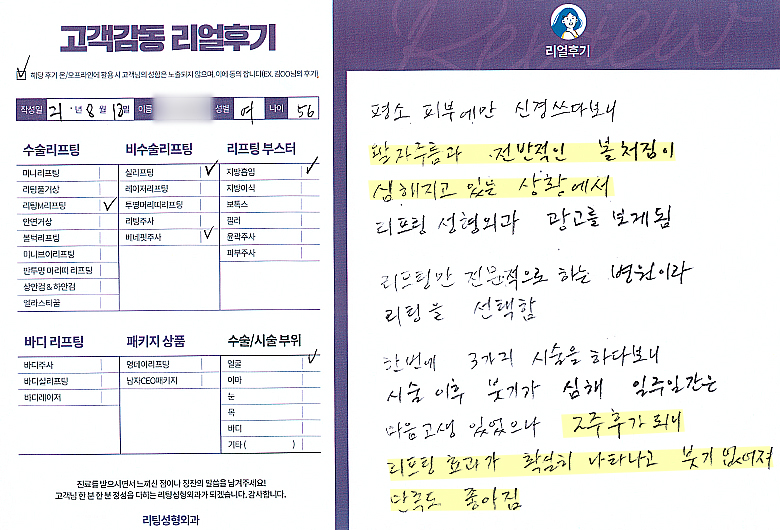 고객감동 리얼후기
해당 후기 온/오프라인에 활용 시 고객님의 성함은 노출되지 않으며, 이에 동의 합니다(EX. 김OO님의 후기)
작성일 21 년 8 월 13일 이름 성별 여 나이 56
수술리프팅
미니리프팅
리팅풀거상
리팅M리프팅 ✓
안면거상
볼턱리프팅
미니브이리프팅
반투명 머리띠 리프팅
상안검 & 하안검
엘라스티꿈
비수술리프팅
실리프팅 ✓
레이저리프팅
투명머리띠리프팅
리팅주사
비네핏주사 ✓
리프팅 부스터
지방흡입 ✓
지방이식
보톡스
필러
윤곽주사
피부주사
바디 리프팅
바디주사
바디실리프팅
바디레이저
패키지 상품
원데이리프팅
남자CEO패키지
수술/시술 부위
얼굴 ✓
이마
눈
목
바디
기타 ( )
진료를 받으시면서 느끼신 점이나 칭찬의 말씀을 남겨주세요!
고객님 한 분 한 분 정성을 다하는 리팅성형외과가 되겠습니다. 감사합니다.
리팅성형외과
Review
리얼후기
평소 피부에만 신경쓰다보니
팔자주름과 전반적인 볼처짐이
심해지고 있는 상황에서
리프팅 성형외과 광고를 보게됨
리프팅만 전문적으로 하는 병원이라
리팅을 선택함
한번에 3가지 시술을 하다보니
시술 이후 붓기가 심해 일주일간은
마음고생 있었으나 2주후가 되니
리프팅 효과가 확실히 나타나고 붓기 없어져
만족도 좋아짐